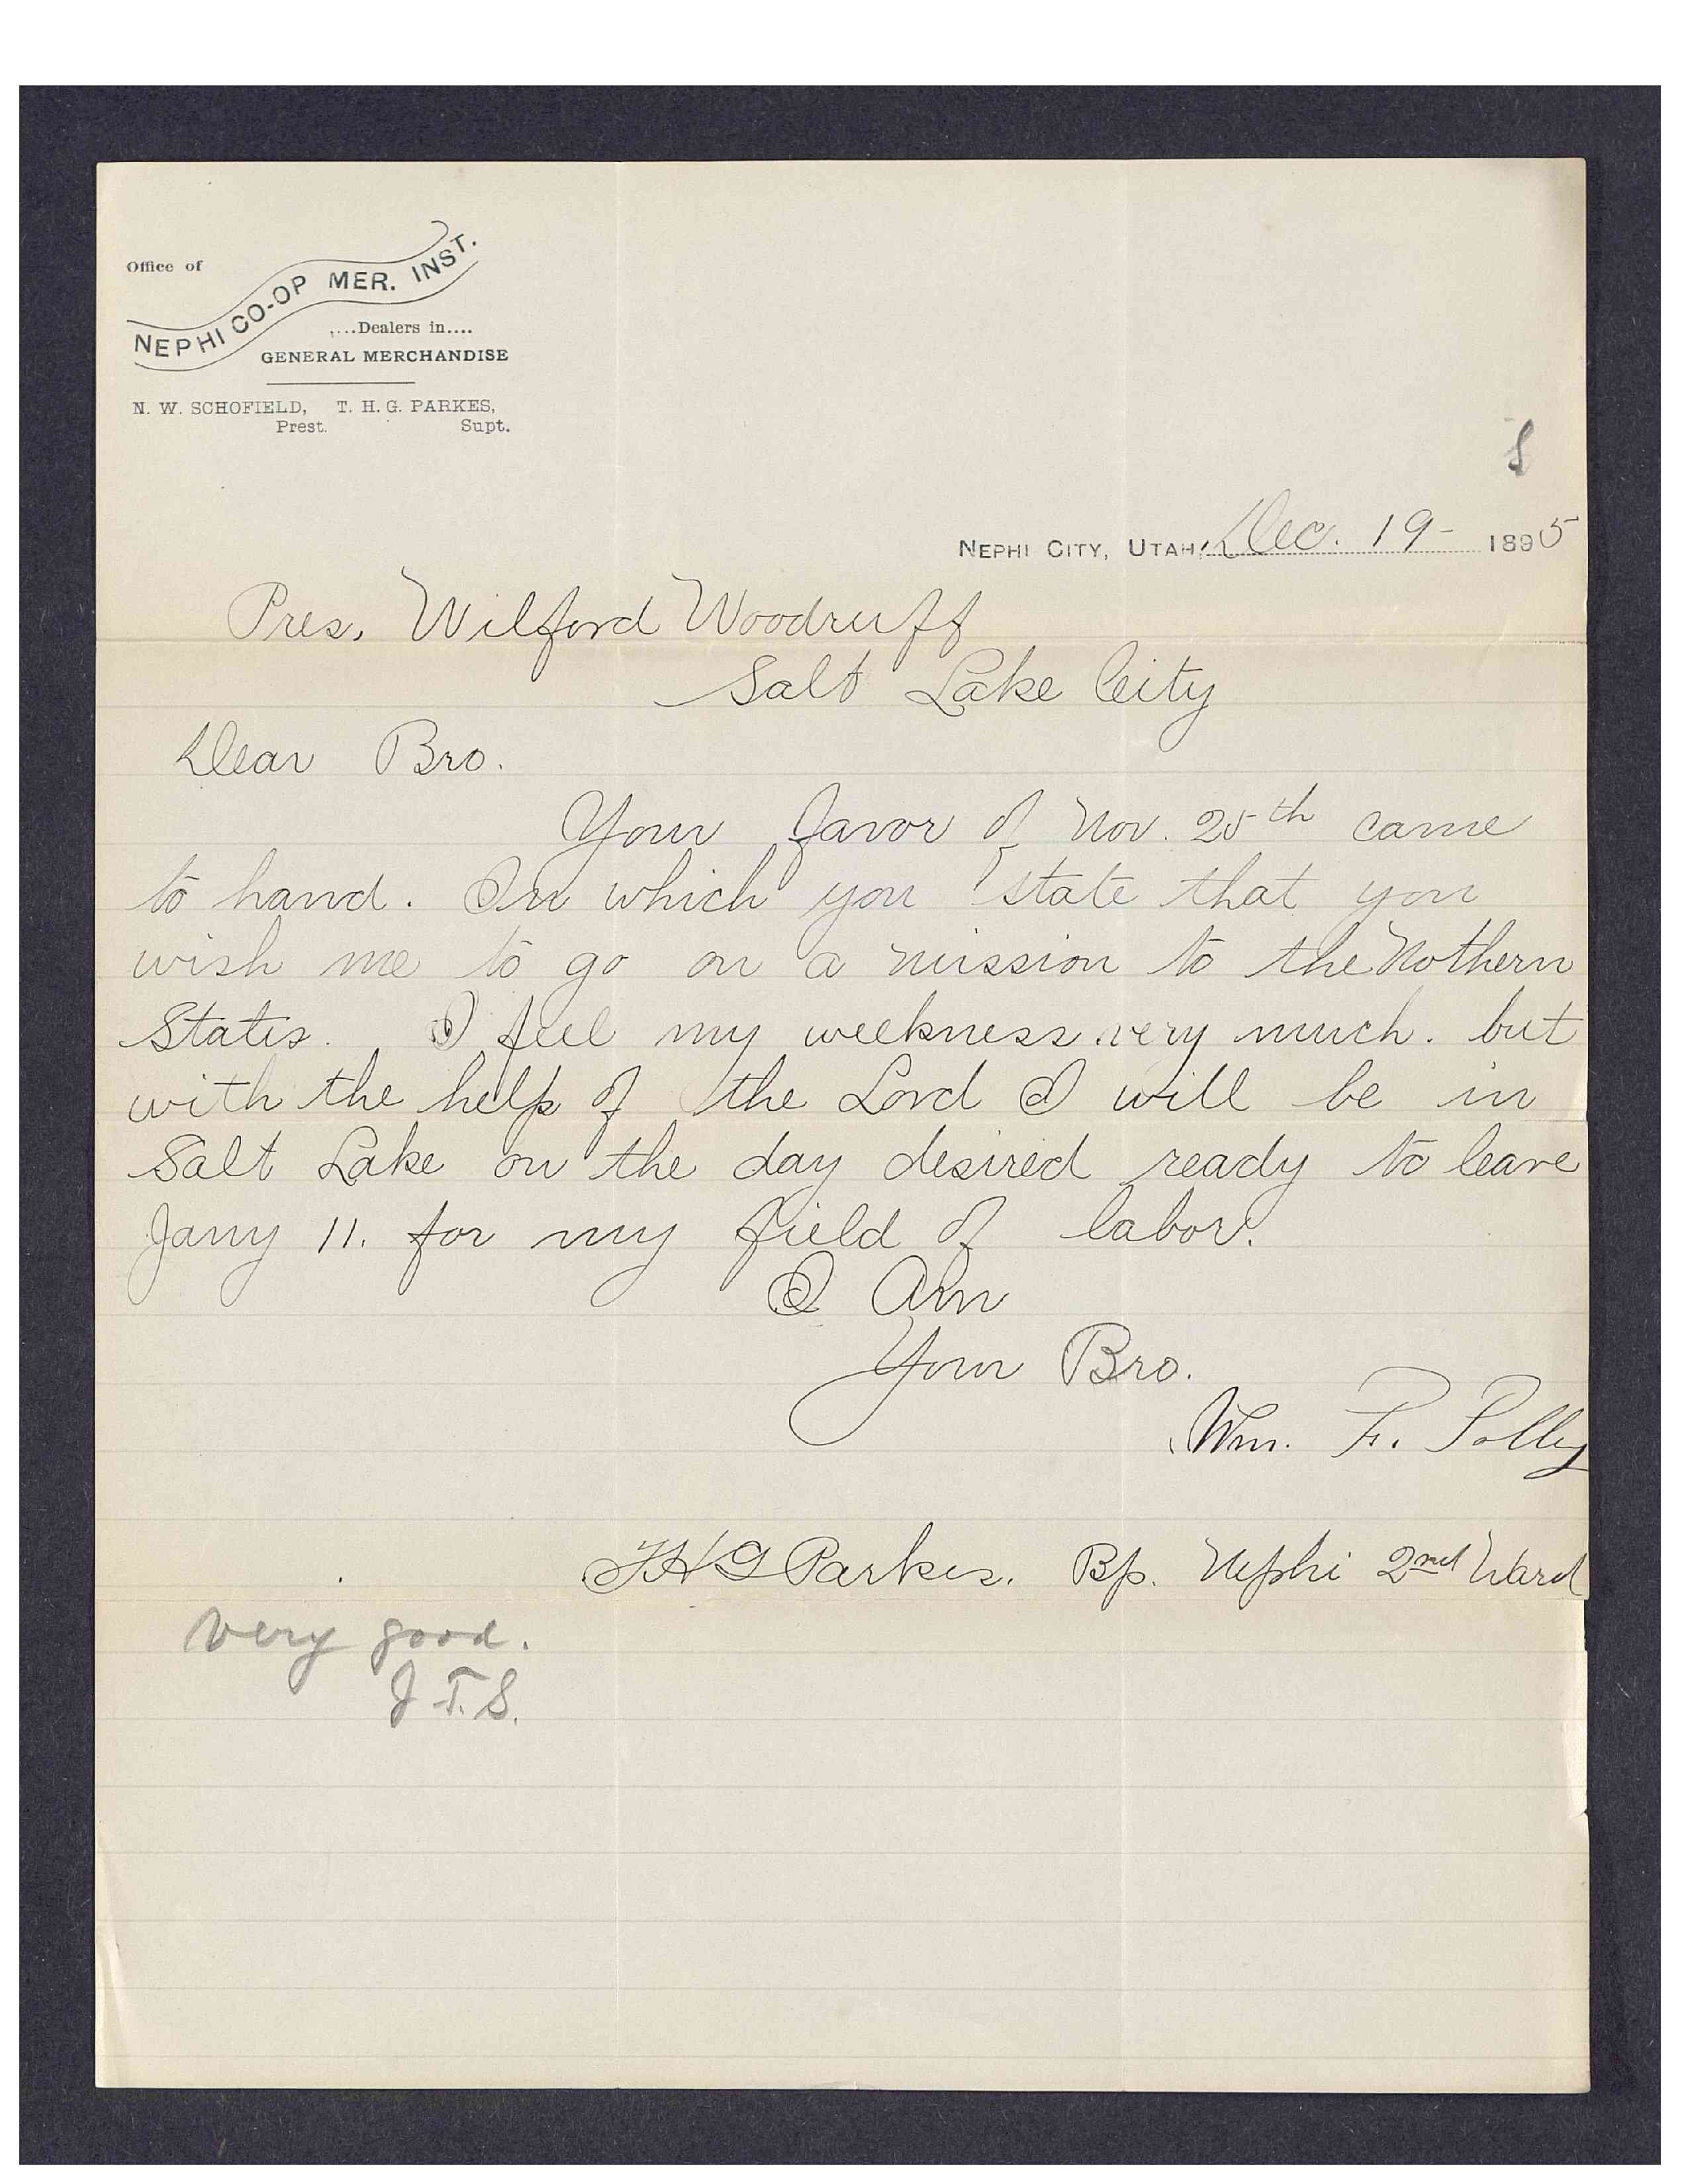 Office of
NEPHI CO-OP MER. INST.
....Dealers in....
GENERAL MERCHANDISE
N. W. SCHOFIELD, T. H. G. PARKES,
Prest. Supt.
S
NEPHI CITY, UTAH, Dec. 19- 1895
Pres. Wilford Woodruff
Salt Lake City
Dear Bro.
Your favor of Nov. 25th came
to hand. In which you state that you
wish me to go on a mission to the Nothern
States. I feel my weekness very much. but
with the help of the Lord I will be in
Salt Lake on the day desired ready to leave
Jany 11. for my field of labor.
I Am
Your Bro.
Wm. F. Polly
THG Parkes. Bp. Nephi 2nd Ward
very good.
J.T.S.